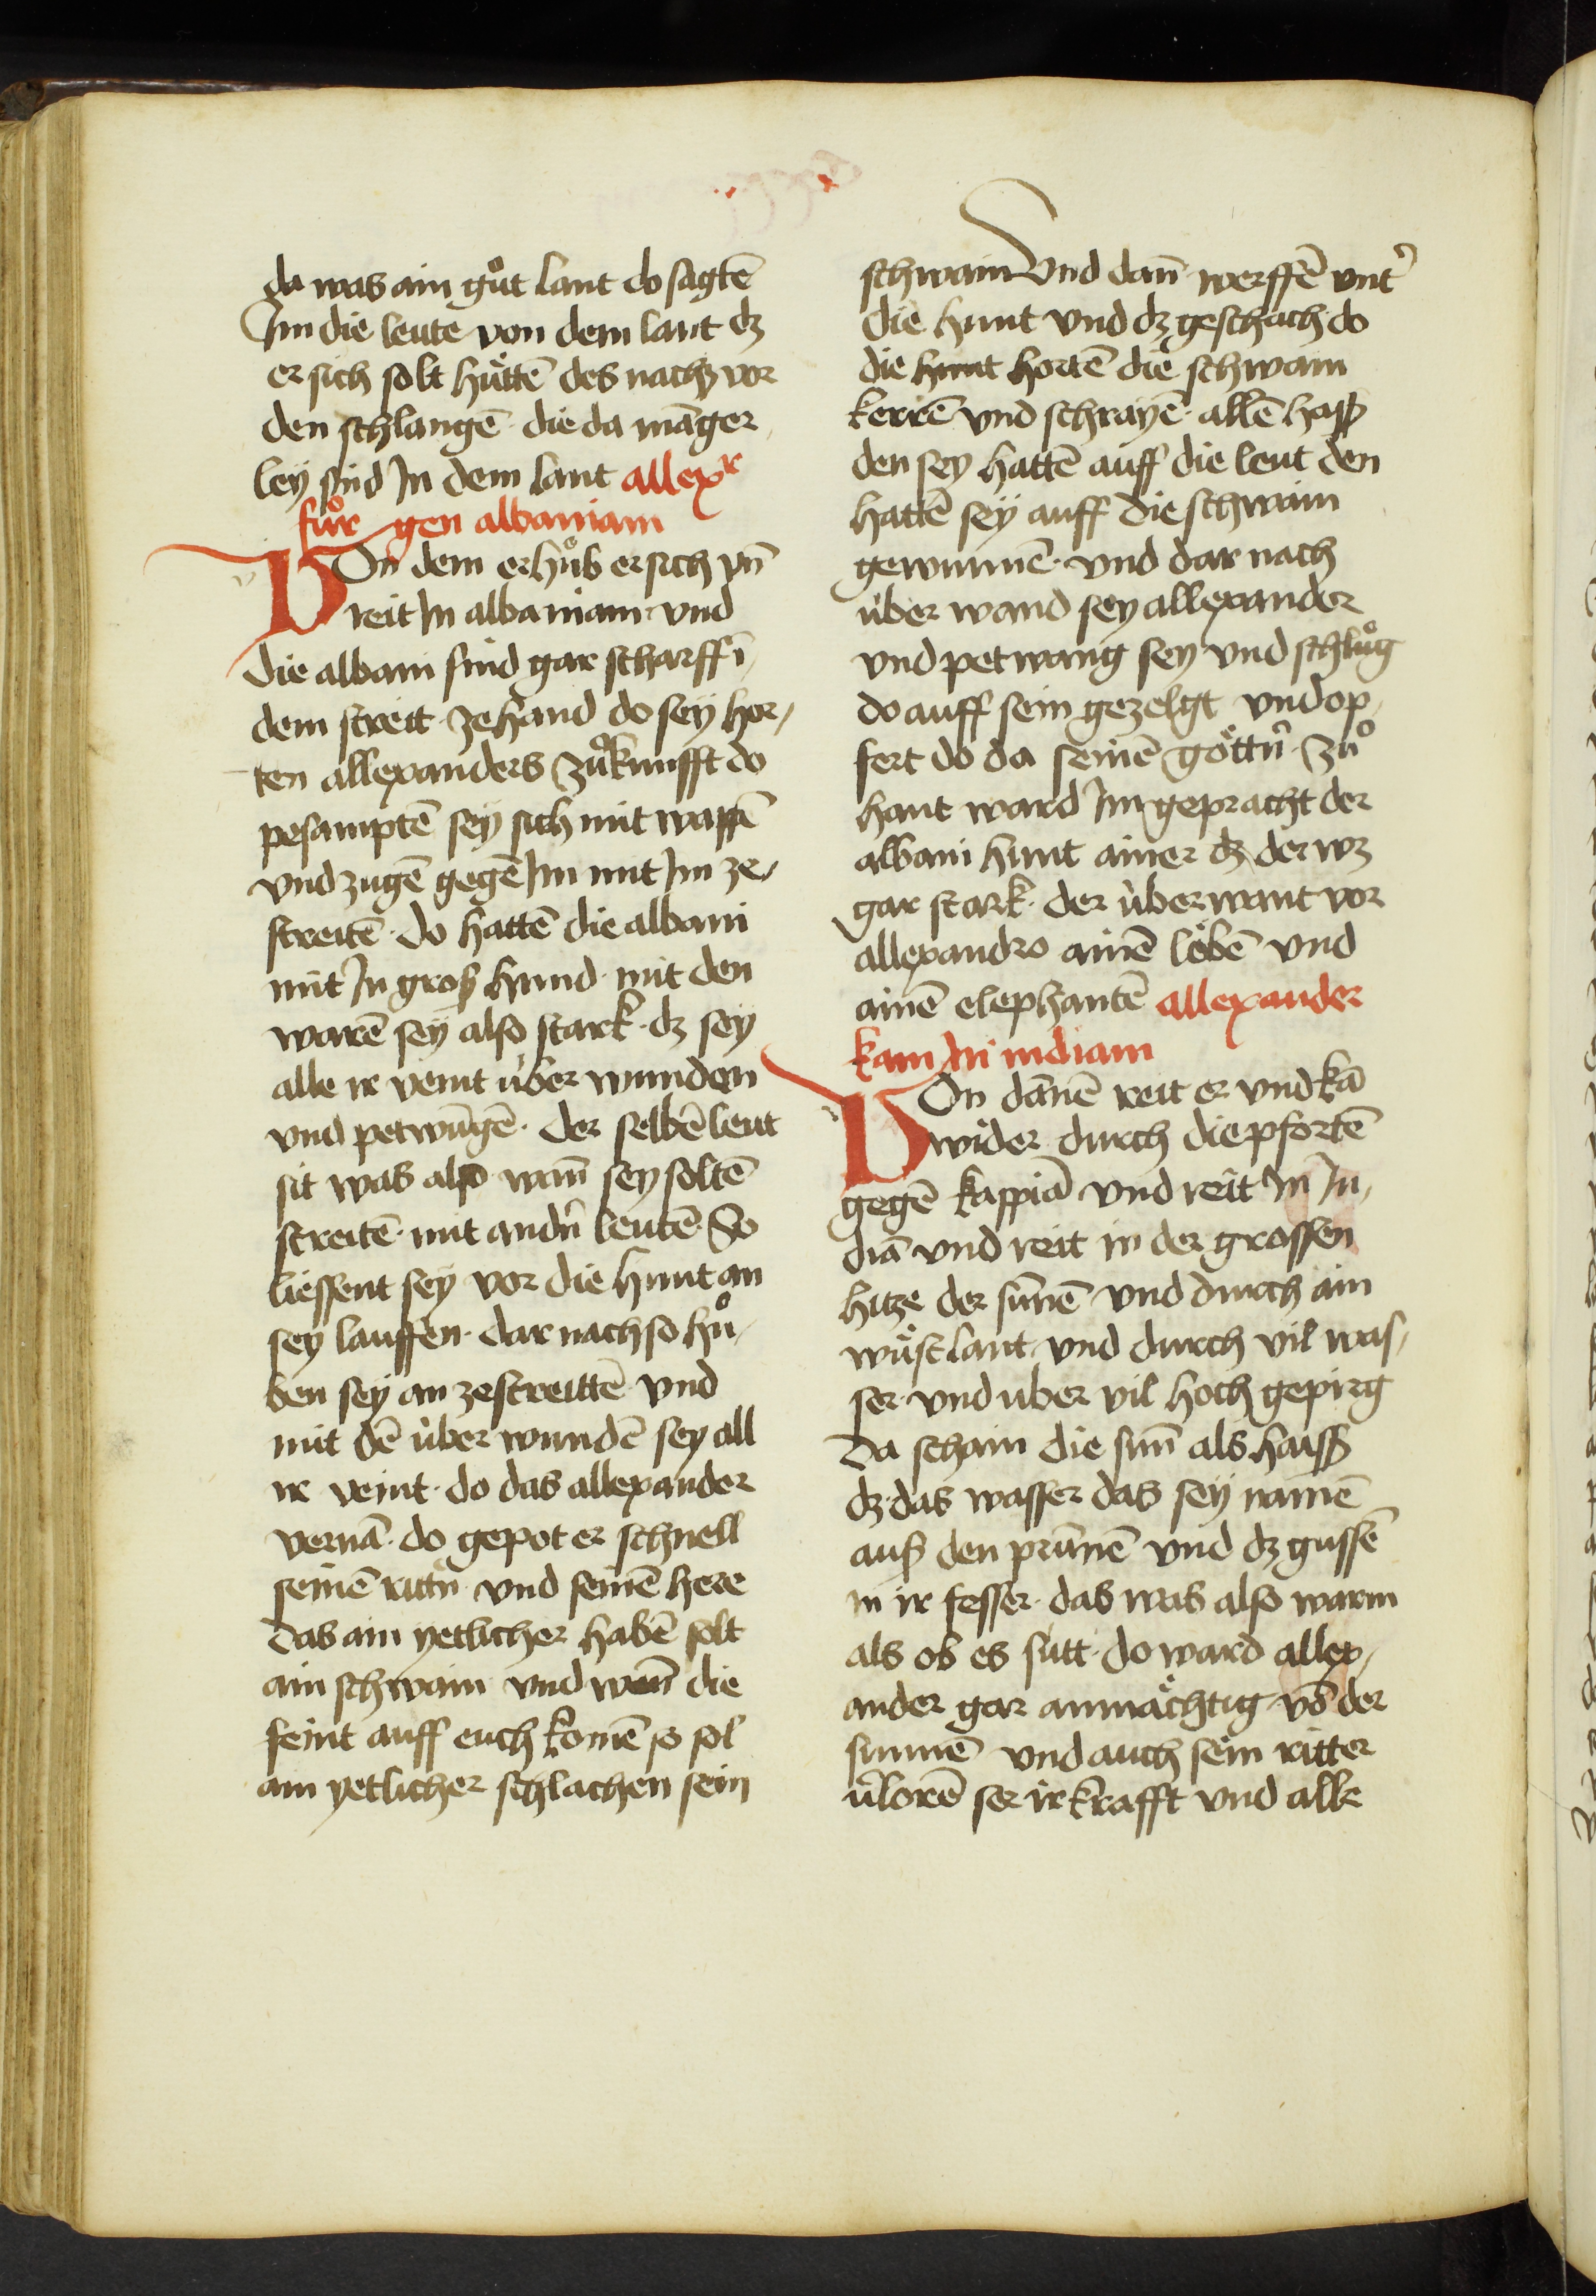 da was ain gůt lant do sagtē
Im die leute von dem lant dz
er sich solt hütē des nachtz vor
den schlangē · die da mānger
ley sind In dem lant allexr
fůr gen albaniam
VOn dem erhůb er sich vn̄
reit In albaniam · vnd
die albani sind gar scharff ī
dem streit · zehand do sey hor⸗
ten allexanders zůkunfft do
pesamptē sey sich mit waffē
vnd zugē gegē Im mit Im ze⸗
streitē · do hattē die albani
mit In groß hund · mit den
warē sey also stark · dz sey
alle ir veint über wunden
vnd petwūgē · der selbē leut
sit was also wañ sey soltē
streitē · mit andn̄ leutē · So
liessent sey vor die hunt an
sey lauffen · dar nach so hů⸗
ben sey an zestreittē vnd
mit dē über wundē sey all
ir veint · do das allexander
vernā · do gepot er schnell
seinē rittn̄ · vnd seinē here
das ain yetlicher habē solt
ain schwain vnd wen̄ die
feint auff euch komē so sol
ain yetlicher schlachen sein
schwain Vnd dañ · werffē vnt̓
die hunt vnd dz geschach · do
die hunt hortē die schwain
kerrē vnd schrayē · allē hass
den sey hattē auff die leut den
hattē sey auff die schwain
gewunnē · vnd dar nach
über wand sey allexander
vnd petwang sey vnd schlůg
do auff sein gezelgt vnd op⸗
fert do da seinē göttn̄ · zů
hant ward Im gepracht der
albani hunt ainer dz der wz
gar stark · der überwant vor
allexandro ainē löbē vnd
ainē elephantē allexander
kam In indiam
VOn dānē reit er vnd kā
wider durch die pfortē
gegē kaspiā vnd reit In In⸗
diā vnd reit in der grossen
hitze der sunē vnd durch ain
wüst lant · vnd durch vil was⸗
ser · vnd uber vil hoch gepirg
da schain die sun̄ als haiss
dz das wasser das sey namē
auß den prūnē vnd dz gussē
in ir fesser · das was also warm
als ob es sutt · do ward allex⸗
ander gar anmächtig · vō der
sunnē vnd auch sein ritter
v̓lorē ser ir krafft vnd alle